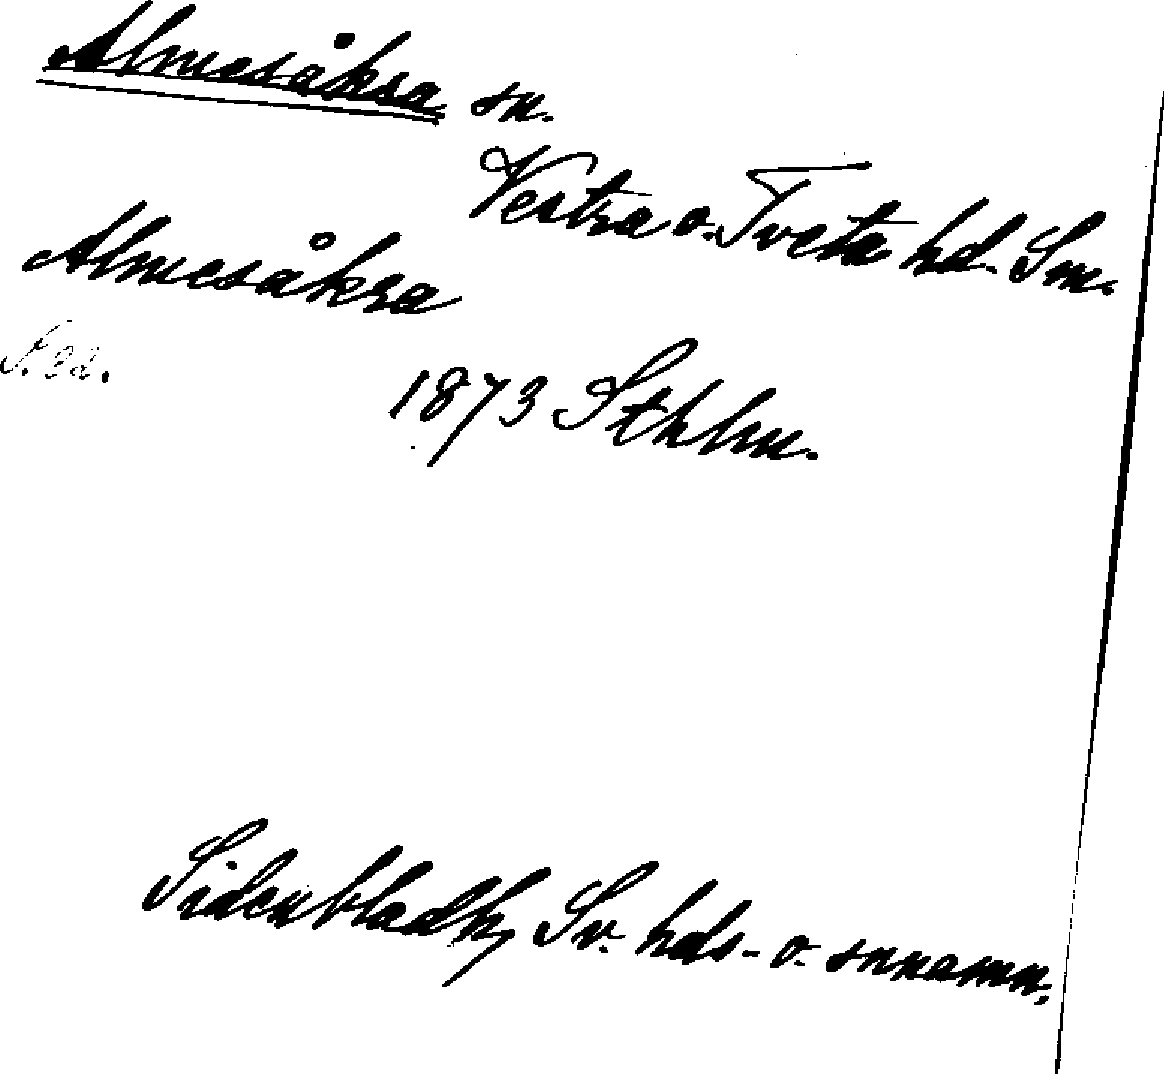 Almesåkra sn.
Vestra o. Tveta hd. Sm.
Almesåkra
S. 32.
1873 Sthlm.
Sidenbladh, Sv. hds- o. snnamn.